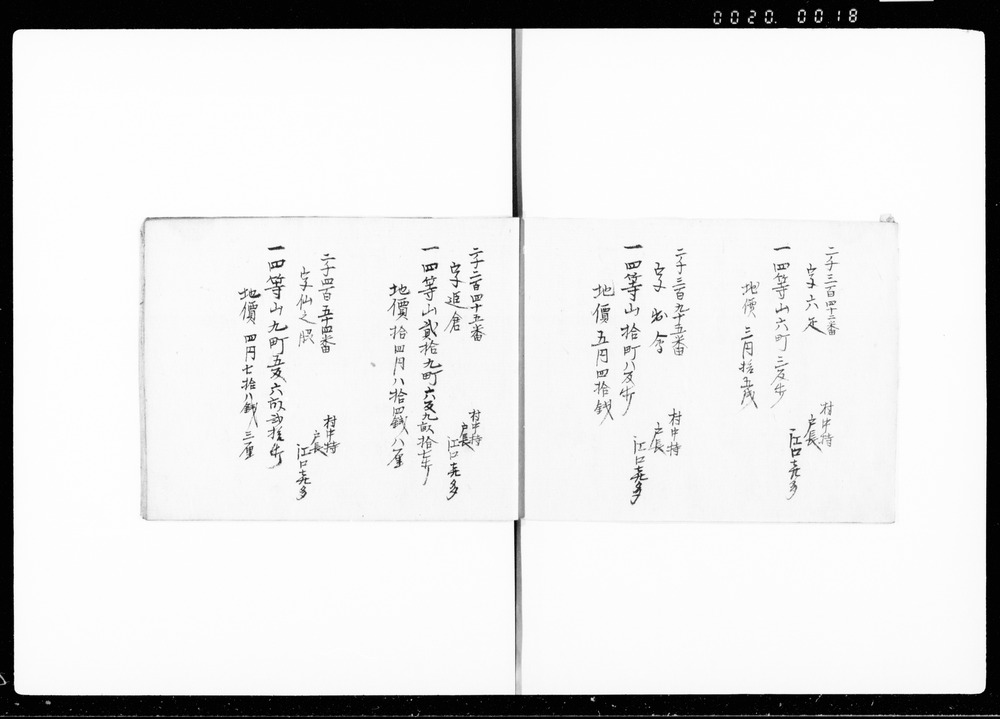 0020. 0018
二千三百四十二番
字六疋
一四等山六町三反歩
地價三円拾五戋
村中持
戸長
江口喜多
二千三百九十五番
字
一四等山拾町八反歩
地價五円四拾銭
村中持
戸長
江口喜多
二千二百四十五番
字追倉
一四等山貳拾九町六反九畝拾七歩
地價拾四円八拾四銭八厘
村中持
戸長
江口喜多
二千四百五十四番
字仙之
一四等山九町五反六畝弐拾歩
地價四円七拾八銭三厘
村中持
戸長
江口喜多